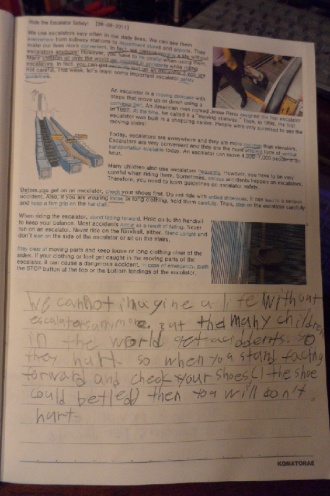 Ride the Escalator Safely!
We use escalators very often in our daily lives. We can see them
everywhere from subway stations to department stores and airports. They
make our lives more convenient. In fact, we cannot imagine a life without
escalators anymore. However, you need to be careful when using them.
not careful. This week, let's learn some important escalator safety
An escalator is a moving staircase with
steps that move up or down using a
conveyor belt. An American man named Jesse Reno designed the escalator
moving stairs built in a shopping
Today, escalators are everywhere and they are more than elevators.
Escalators are very convenient and they are the most form of vertical
transportation used today. An escalator can move
Many children also use escalators However, you have to be very
careful when riding them. Sometimes, serious accidents happen on escalators.
Therefore, you need to learn guidelines on escalator safety.
Before you get on an escalator, check your shoes first. Do not ride with untied shoelaces. It can
accident. Also, if you are wearing loose or long clothing, hold them carefully. Then, step on the escalator carefully
and keep a firm grip on the handrail.
When riding the escalator, stand facing forward. Hold on to the handrail
to keep your balance. Most accidents occur as a result of falling. Never
run on an escalator. Never ride on the handrail, either. Stand upright and
don't lean on the side of the escalator or sit on the stairs.
Stay clear of moving parts and keep loose or long clothing clear of the
sides. If your clothing or feet get caught in the moving parts of the
escalator, it can cause a dangerous accident. In case of emergency, push
the STOP button at the top or the bottom landings of the escalator.
We cannot imagine a life without
escalators anymore. but the many children
in the world get accidents. so
they hurt. so when you stand facing
forward and check your shoes, (the shoe
could be tied) then you will don't
hurt.
KOMATORAE